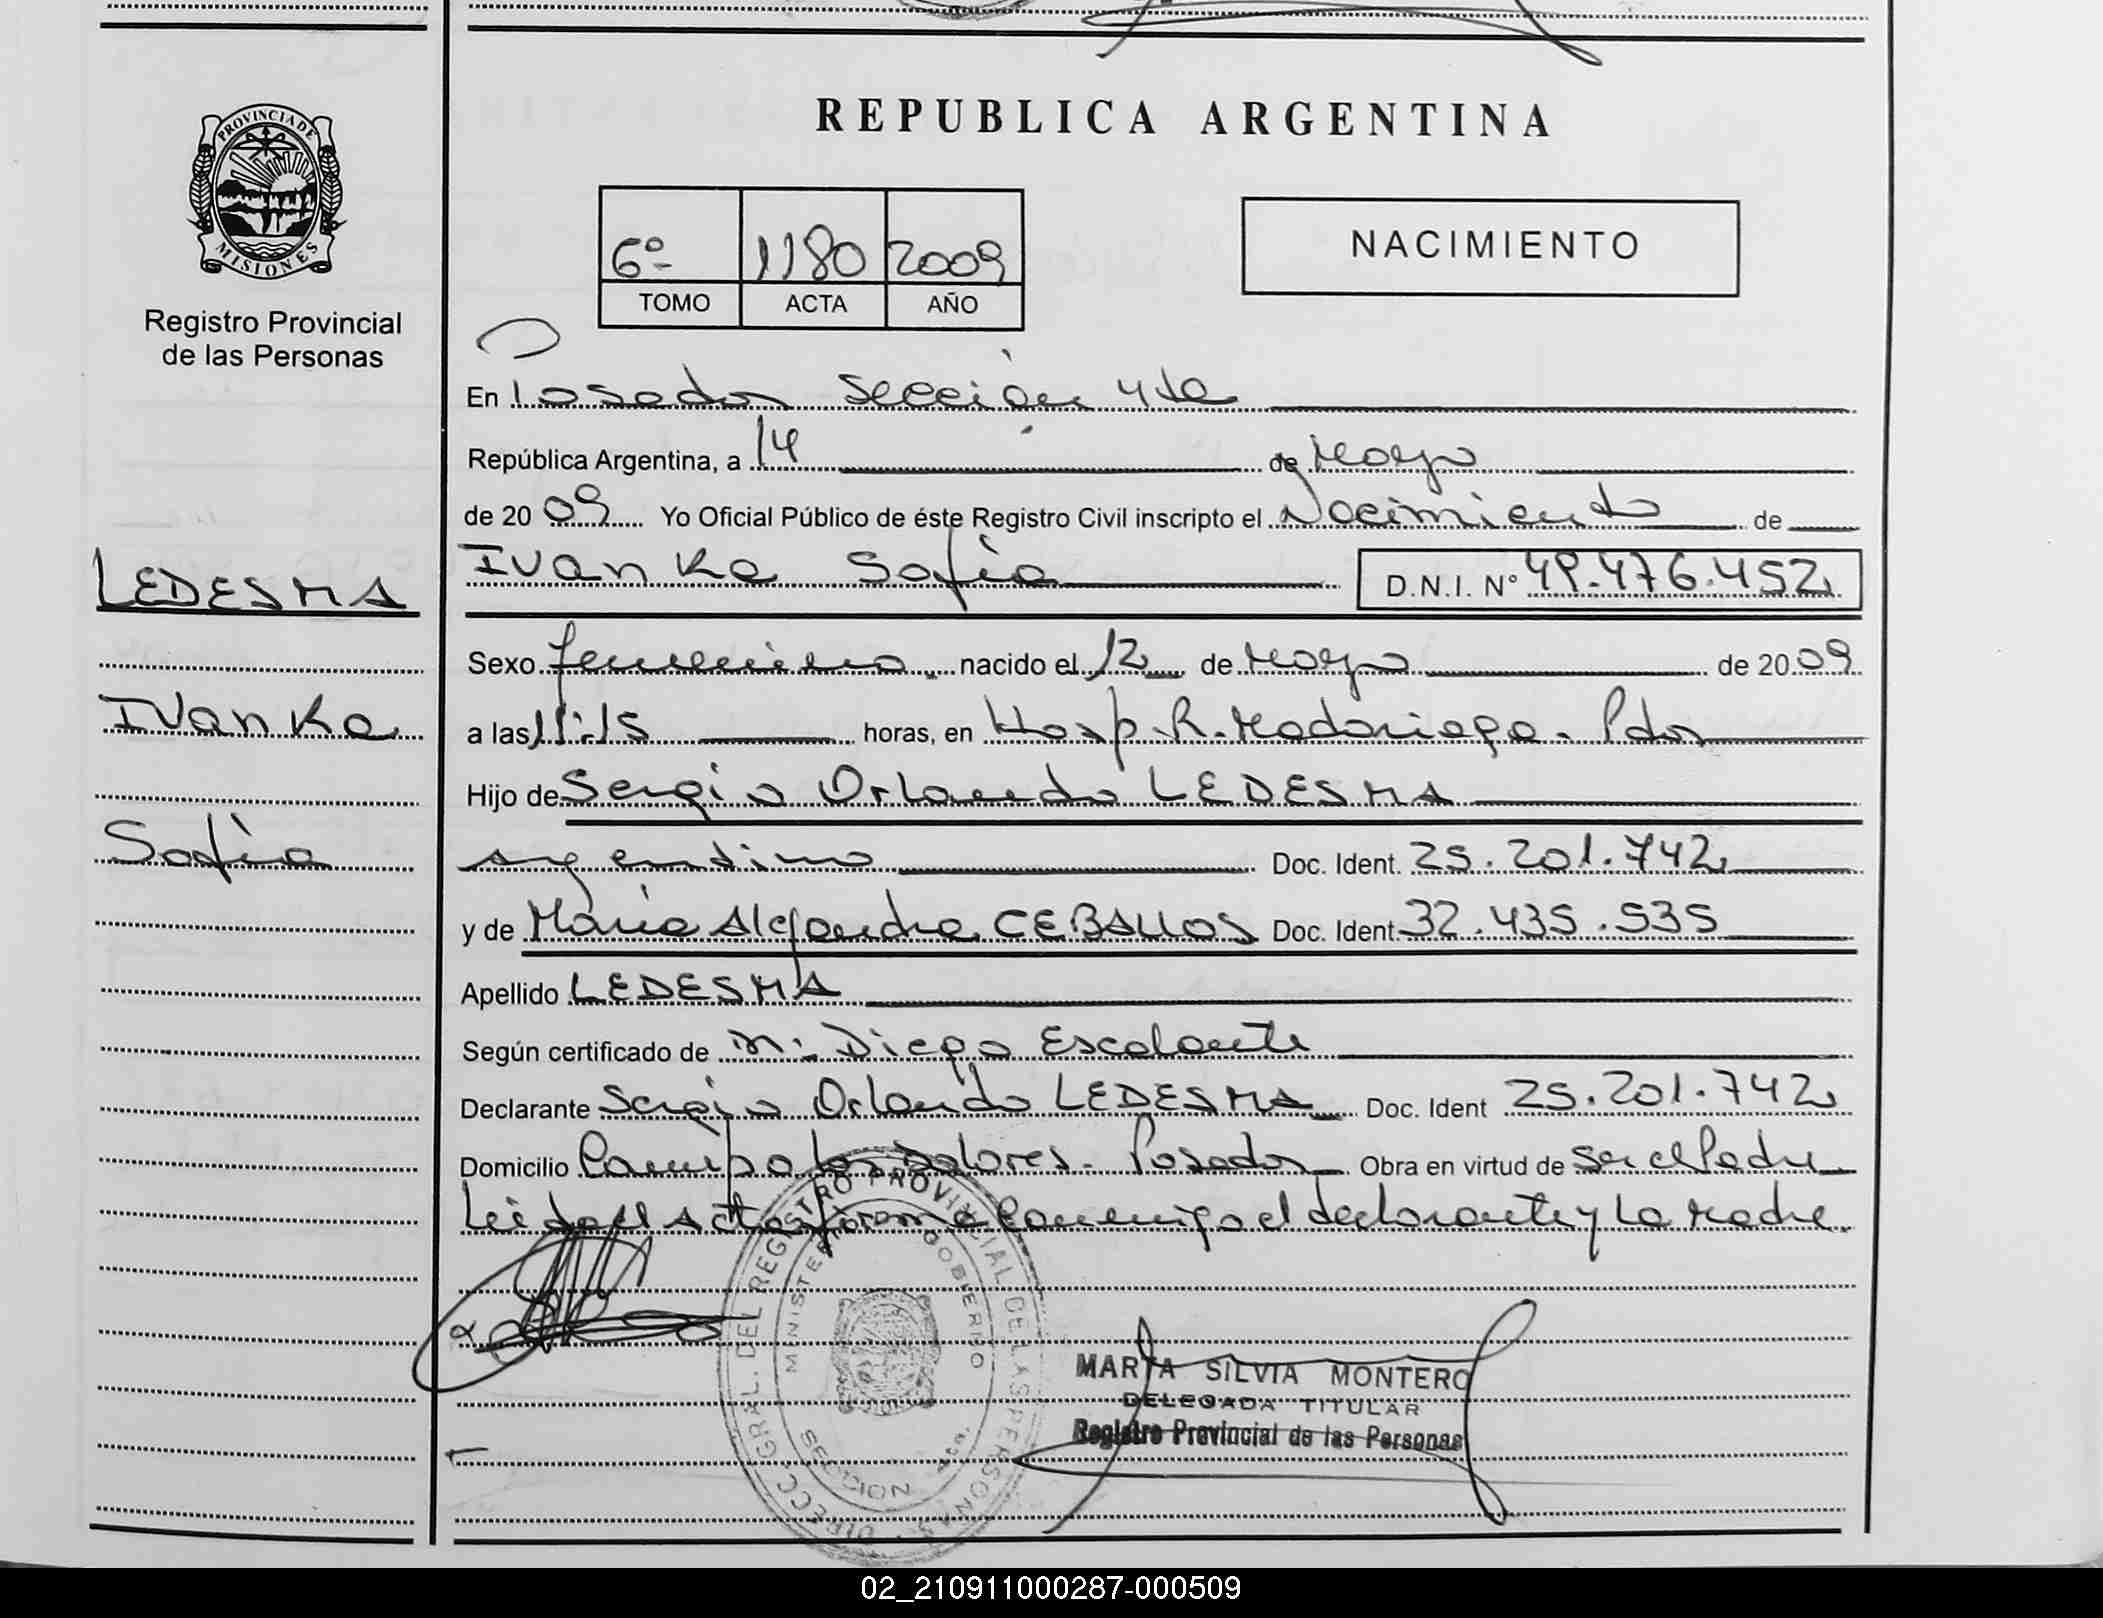 PROVINCIA DE
MISIONES
Registro Provincial
de las Personas
LEDESMA
Ivanka
Sofía
REPUBLICA ARGENTINA
6º 1180 2009
TOMO ACTA AÑO
NACIMIENTO
En Posadas Sección 4ta
República Argentina, a 14 de Mayo
de 2009 Yo Oficial Público de éste Registro Civil inscripto el Nacimiento de
Ivanka Sofía D.N.I. Nº 49.476.452
Sexo femenino nacido el 12 de Mayo de 2009
a las 11:15 horas, en Hosp. R. Madariaga. Pdas
Hijo de Sergio Orlando LEDESMA
argentino Doc. Ident. 25.201.742
y de María Alejandra CEBALLOS Doc. Ident. 32.435.535
Apellido LEDESMA
Según certificado de Diego Escalante
Declarante Sergio Orlando LEDESMA Doc. Ident 25.201.742
Domicilio Los Dolores. Posadas Obra en virtud de ser el Padre
Leída el Acta firma conmigo el declarante y La Madre.
DIRECC. GRAL. DEL REGISTRO PROVINCIAL DE LAS PERSONAS
MINISTERIO GOBIERNO
SECCION 4ta.
MARTA SILVIA MONTERO
DELEGADA TITULAR
Registro Provincial de las Personas
02_210911000287-000509